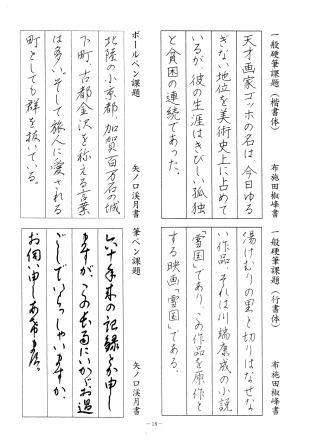 一般硬筆課題（楷書体）　布施田椒峰書
天才画家ゴッホの名は、今日ゆる
ぎない地位を美術史上に占めて
いるが、彼の生涯はきびしい孤独
と貧困の連続であった。
一般硬筆課題（行書体）　布施田椒峰書
湯けむりの里と切りはなせな
い作品、それは川端康成の小説
「雪国」であり、この作品を原作と
する映画「雪国」である。
ボールペン課題　矢ノ口渓月書
北陸の小京都、加賀百万石の城
下町、古都金沢を称える言葉
は多い。そして旅人に愛される
町としても群を抜いている。
筆ペン課題　矢ノ口渓月書
六十年来の記録とか申し
ますが、この長雨にいかがお過
ごしでいらっしゃいますか。
お伺い申しあげます。
－18－